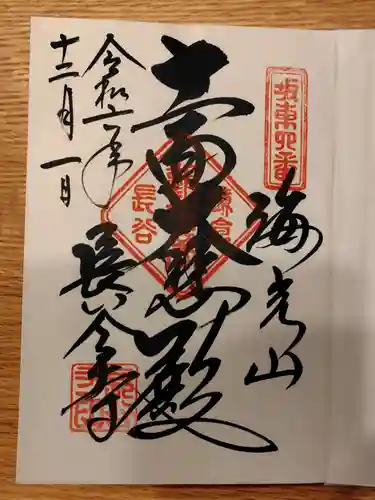 坂東四番
海光山
十一面大悲殿
鎌倉
長谷
長谷寺
令和二年
十二月一日